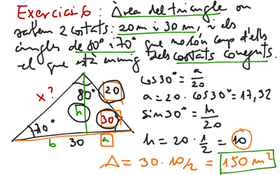 Exercici 6: Àrea del triangle on
sabem 2 costats: 20m i 30m, i els
angles de 80º i 70º que no són cap d'ells
el que està enmig dels costats coneguts.
x?
80º
20
h
30
70º
b
30
a
cos30º = a/20
a = 20·cos30º = 17,32
sin30º = h/20
h = 20·1/2 = 10
A = 30·10/2 = 150 m²